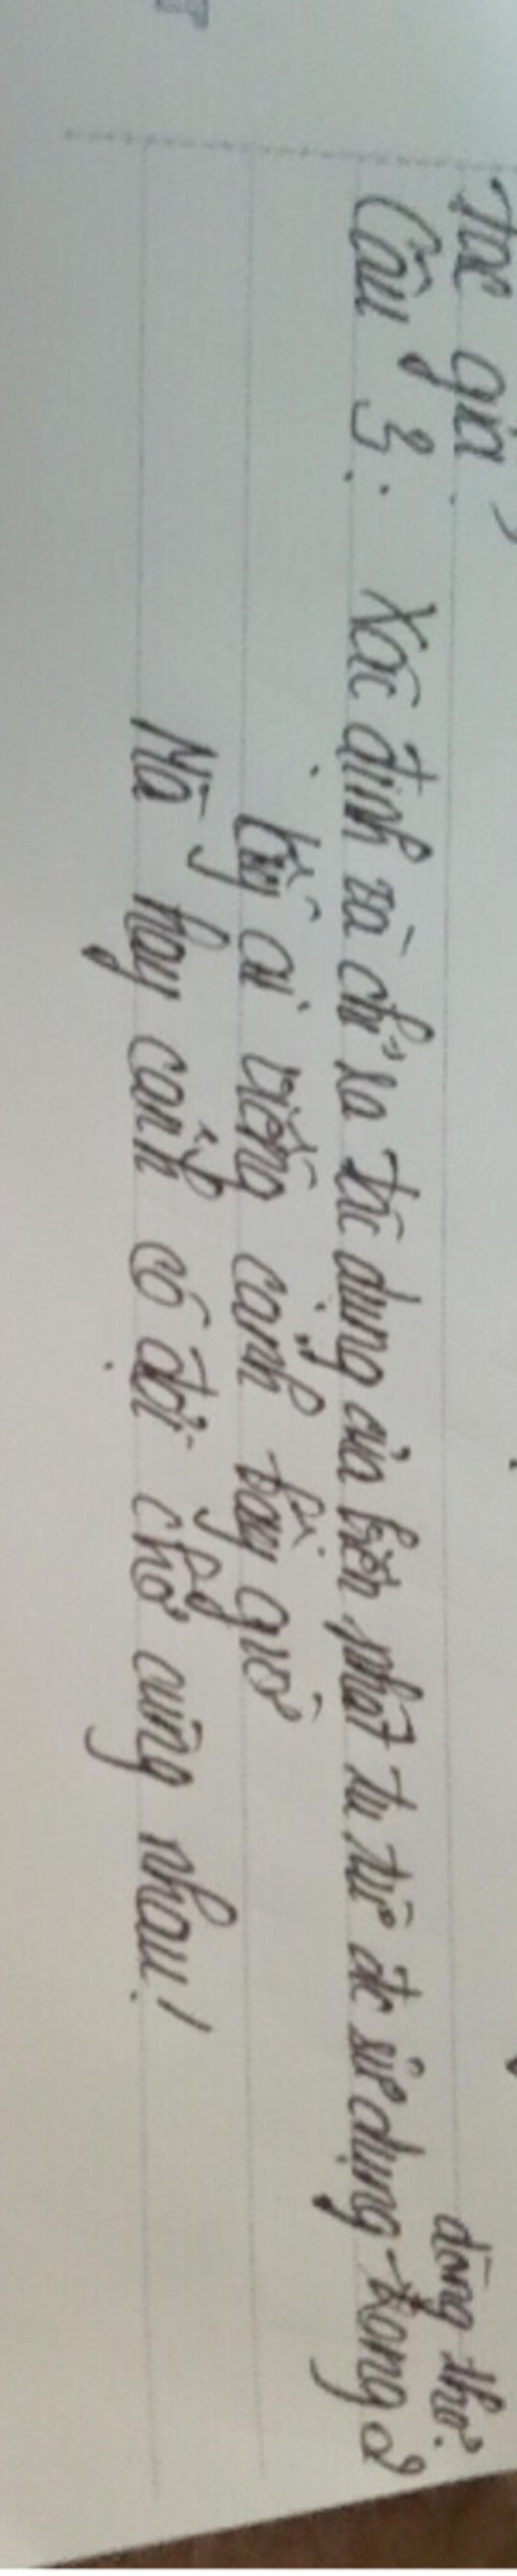 tác giả
Câu 3: Xác định và chỉ ra tác dụng của biện pháp tu từ đc sử dụng trong 2
dòng thơ.
cạnh bây giờ
Mà hay cảnh có đợi chờ cùng nhau!